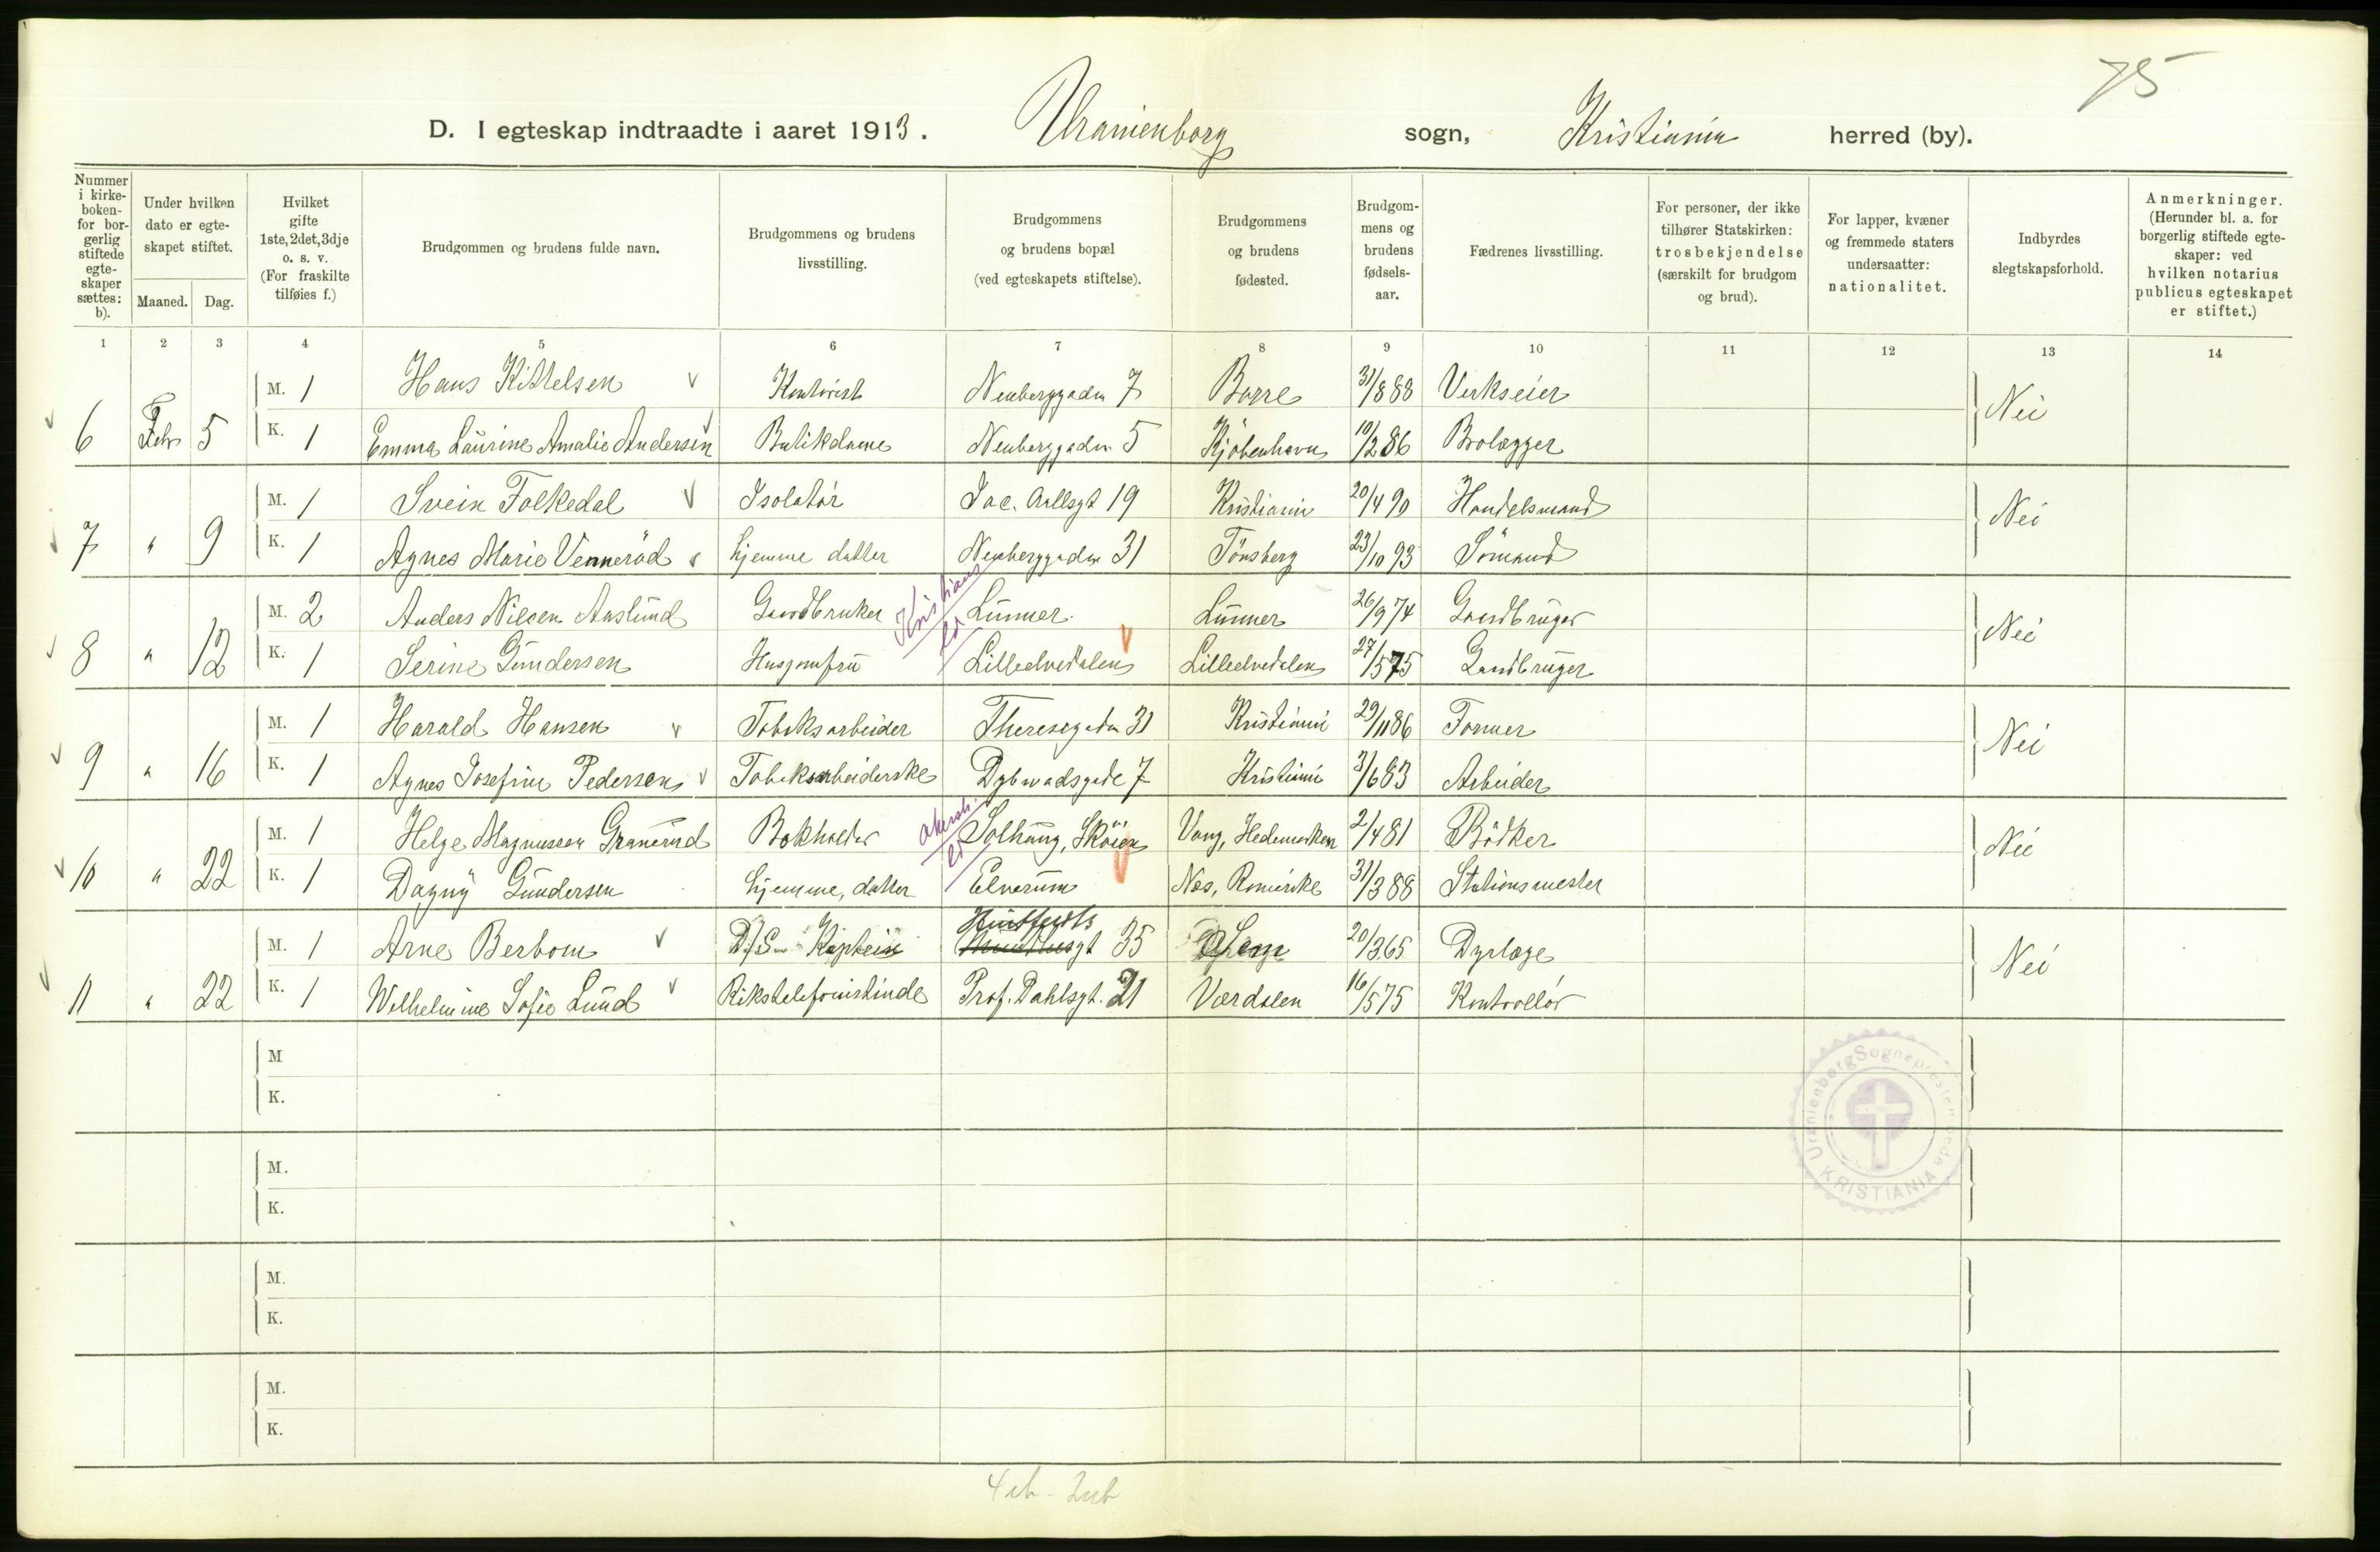 75
D. I egteskap indtraadte i aaret 1913. Uranienborg sogn, Kristiania herred (by).
Nummer i kirke-boken- for bor-gerlig stiftede egte-skaper sættes: b).
Under hvilken dato er egte-skapet stiftet.
Maaned. Dag.
Hvilket gifte 1ste, 2det, 3dje o. s. v. (For fraskilte tilføies f.)
Brudgommen og brudens fulde navn.
Brudgommens og brudens livsstilling.
Brudgommens og brudens bopæl (ved egteskapets stiftelse).
Brudgommens og brudens fødested.
Brudgom-mens og brudens fødsels-aar.
Fædrenes livsstilling.
For personer, der ikke tilhører Statskirken: trosbekjendelse (særskilt for brudgom og brud).
For lapper, kvæner og fremmede staters undersaatter: nationalitet.
Indbyrdes slegtskapsforhold.
Anmerkninger. (Herunder bl. a. for borgerlig stiftede egte-skaper: ved hvilken notarius publicus egteskapet er stiftet.)
1 2 3 4 5 6 7 8 9 10 11 12 13 14
M. 1 Hans Kittelsen Kontorist Neuberggaden 7 Borre 31/8 88 Verkseier
6 Feb 5 K. 1 Emma Laurine Amalie Andersen Butikdame Neuberggaden 5 Kjøbenhavn 10/2 86 Brolægger Nei
M. 1 Svein Folkedal Isolatør Jac. Aallsgt 19 Kristiania 20/4 90 Handelsmand
7 " 9 K. 1 Agnes Marie Vennerød hjemme datter Neuberggaden 31 Tønsberg 23/10 93 Sømand Nei
Kristians
M. 2 Anders Nilsen Aaslund Gaardbruker Lunner Lunner 26/9 74 Gaardbruger
8 " 12 K. 1 Serine Gundersen Husjomfru Lilleelvedalen Lilleelvedalen 27/5 75 Gaardbruger Nei
M. 1 Harald Hansen Tobaksarbeider Theresegaden 31 Kristiania 29/11 86 Former
9 " 16 K. 1 Agnes Josefine Pedersen Tobaksarbeiderske Dybwadsgade 7 Kristiania 3/6 83 Arbeider Nei
Akersh.
M. 1 Helge Magnussen Granerud Bokholder Solhaug, Skøien Vang, Hedemarken 2/4 81 Bødker
10 " 22 K. 1 Dagny Gundersen hjemme, datter Elverum Nes, Romerike 31/3 88 Stationsmester Nei
M. 1 Arne Berbom D/S Kaptein Huitfeldts gt 35 Sem 20/3 65 Dyrlæge
11 " 22 K. 1 Wilhelmine Sofie Lund Rikstelefonistinde Prof. Dahlsgt. 21 Værdalen 16/5 75 Kontrollør Nei
M
K.
M.
K.
M.
K.
M.
K.
Uranienborg Sogneprestembede KRISTIANIA